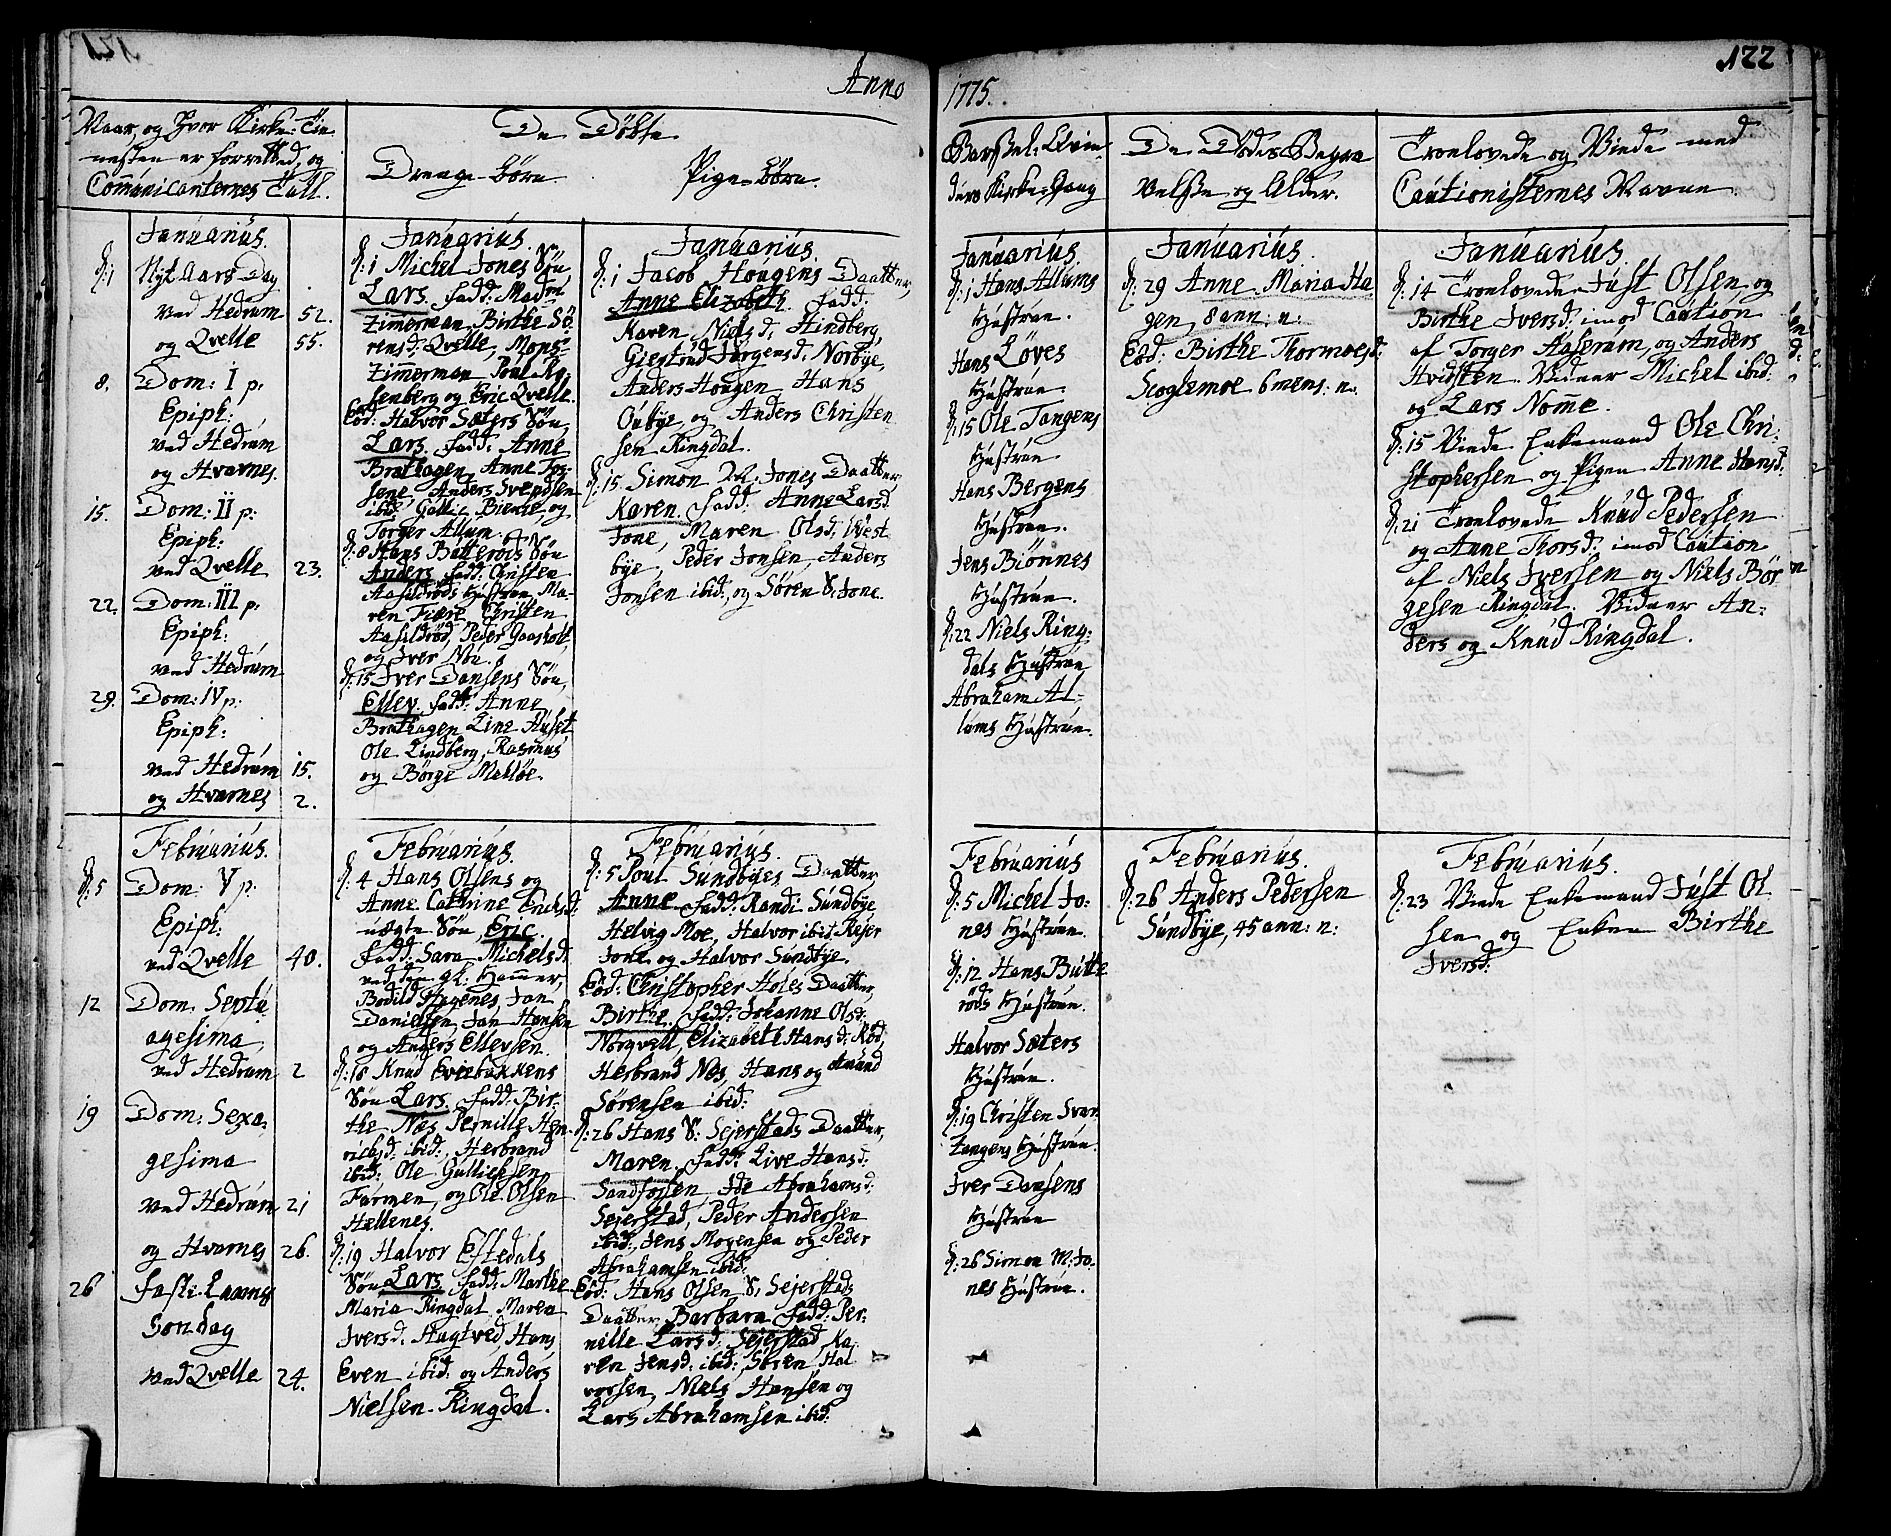 121
122
Anno
1775.
Naar, og Hvor Kirke-Tie-
nesten er forretted, og
Com̅unicanternes Tall.
De Døbte
Drenge-børn.
Pige-børn.
Barsel-Qvin-
ders Kirke-Gang
De Dødes Begra-
velse og Alder.
Troelovede og Viede med
Cautionisternes Navne.
Januarius.
d: 1 Nyt Aars Dag
ved Hedrum 52.
og Qvelle 55.
8. Dom: I p:
Epiph:
ved Hedrum
og Hvarnes.
15. Dom: II p:
Epiph:
ved Qvelle 23.
22. Dom: III p:
Epiph:
ved Hedrum
29. Dom: IV p:
Epiph:
ved Hedrum 15.
og Hvarnes 2.
Januarius.
d: 1 Michel Jones Søn,
Lars. fadd: Madm
Zimerman, Birthe Sø-
rensd: Qvelle, Mons:
Zimerman Poul Ro-
senberg og Eric Qvelle.
Eod: Halvor Sæters Søn,
Lars. fadd: Anne
Brathagen, Anne
Anders Svendsen
ibid: Gullic Bierke, og
Torger Allum.
d: 8 Hans Bøtterøds Søn
Anders fadd: Christen
Aasildrøds Hustrue, Ma-
ren Tiære, Christen
Aasildrød, Peder Gaasholt,
og Iver Moe.
d: 15 Iver Dansens Søn,
Ellev. fadd: Anne
Brathagen, Line Huset
Ole Lindberg, Rasmus
og Børge Melløe.
Januarius.
d: 1 Jacob Hougens Daatter,
Anne Elizabeth. fadd:
Karen Niels d. Hindberg,
Giertrud Jørgensd. Norbye,
Anders Hougen Hans
Oubye, og Anders Christen
sen Ringdal.
d: 15 Simon M. Jones Daatter,
Karen. fadd: Anne Larsd.
Jone, Maren Olsd. West
bye, Peder Jonsen, Anders
Jonsen ibid:, og Søren S. Jone.
Januarius.
d: 1 Hans Allums
Hustrue.
Hans Løves
Hustrue.
d: 15 Ole Tangens
Hustrue
Hans Bergens
Hustrue.
Jens Biønnes
Hustrue.
d: 22 Niels Ring-
dals Hustrue
Abraham Al-
lums Hustrue.
Januarius.
d: 29 Anne Maria Ha
gen, 8 ann: n:
Eod: Birthe Thormoesd:
Scoglemoe 6 mens: n:
Januarius.
d: 14 Troelovede Just Olsen og
Birthe Iversd: imod Caution
af Torger Aaserum, og Anders
Hvidsten. Vidner Michel ibid:
og Lars Nom̅e.
d: 15 Viede Enkemand Ole Chri-
stophersen og Pigen Anne Hansd.
d: 21 Troelovede Knud Pedersen
og Anne Thorsd: imod Caution
af Niels Iversen og Niels Bør
gesen Ringdal. Vidner An-
ders og Knud Ringdal.
Februarius.
d: 5 Dom: V p:
Epiph:
ved Qvelle 40.
12 Dom. Septu
agesima
ved Hedrum 2
19 Dom: Sexa-
gesima
ved Hedrum 21
og Hvarnes 26.
26 Faste-Lavns
Søndag
ved Qvelle 24.
Februarius.
d: 4 Hans Olsens og
Anne Cathrine Ericsd:
uægte Søn, Eric.
fadd: Sara Michelsd:
ved den gl. Ham̅er,
Bodild Hagenes, Jan
Danielsen, Jan Hansen
og Anders Ellevsen.
d: 18 Knud Eviebakkens
Søn Lars. fadd: Bir-
the Næs, Pernille Hen-
richsd: ibid:, Herbrand
ibid: Ole Gulliksen
Farmen, og Ole Olsen
Hællenes.
d: 19 Halvor Estedals
Søn Lars. fadd: Marthe
Maria Ringdal, Maren
Iversd. Hagtved, Hans
Even ibid: og Anders
Nielsen Ringdal.
Februarius.
d: 5 Poul Sundbyes Daatter
Anne fadd: Randi Sundbye
Helvig Moe, Halvor ibid: Rejer
Jone og Halvor Sundbye.
Eod: Christopher Holes Daatter,
Birthe. fadd: Johanne Olsd.
Norqvell, Elizabeth Hansd. Rød,
Herbrand Næs, Hans og Amund
Sørensen ibid:
d: 26 Hans S: Sejerstads Daatter,
Maren. fadd: Live Hansd:
Sandfossen, Ide Abrahamsd:
Sejerstad, Peder Andersen
ibid:, Jens Mogensen og Peder
Abrahamsen ibid:
Eod: Hans Olsen S. Sejerstads
Daatter Barbara. fadd: Per-
nille Larsd. Sejerstad, Ka-
ren Jensd: ibid:, Søren Hal
vorsen, Niels Hansen og
Lars Abrahamsen ibid:
Februarius
d: 5 Michel Jo-
nes Hustrue.
d: 12 Hans Bütte
røds Hustrue.
Halvor Sæters
Hustrue.
d: 19 Christen Svar-
tangens Hustrue.
Iver Dansens
Hustrue
d: 26 Simon M: Jo-
nes Hustrue.
Februarius.
d: 26 Anders Pedersen
Sundbye, 45 ann: n:
Februarius.
d: 23 Viede Enkemand Just Ol
sen og Enken Birthe
Iversd: